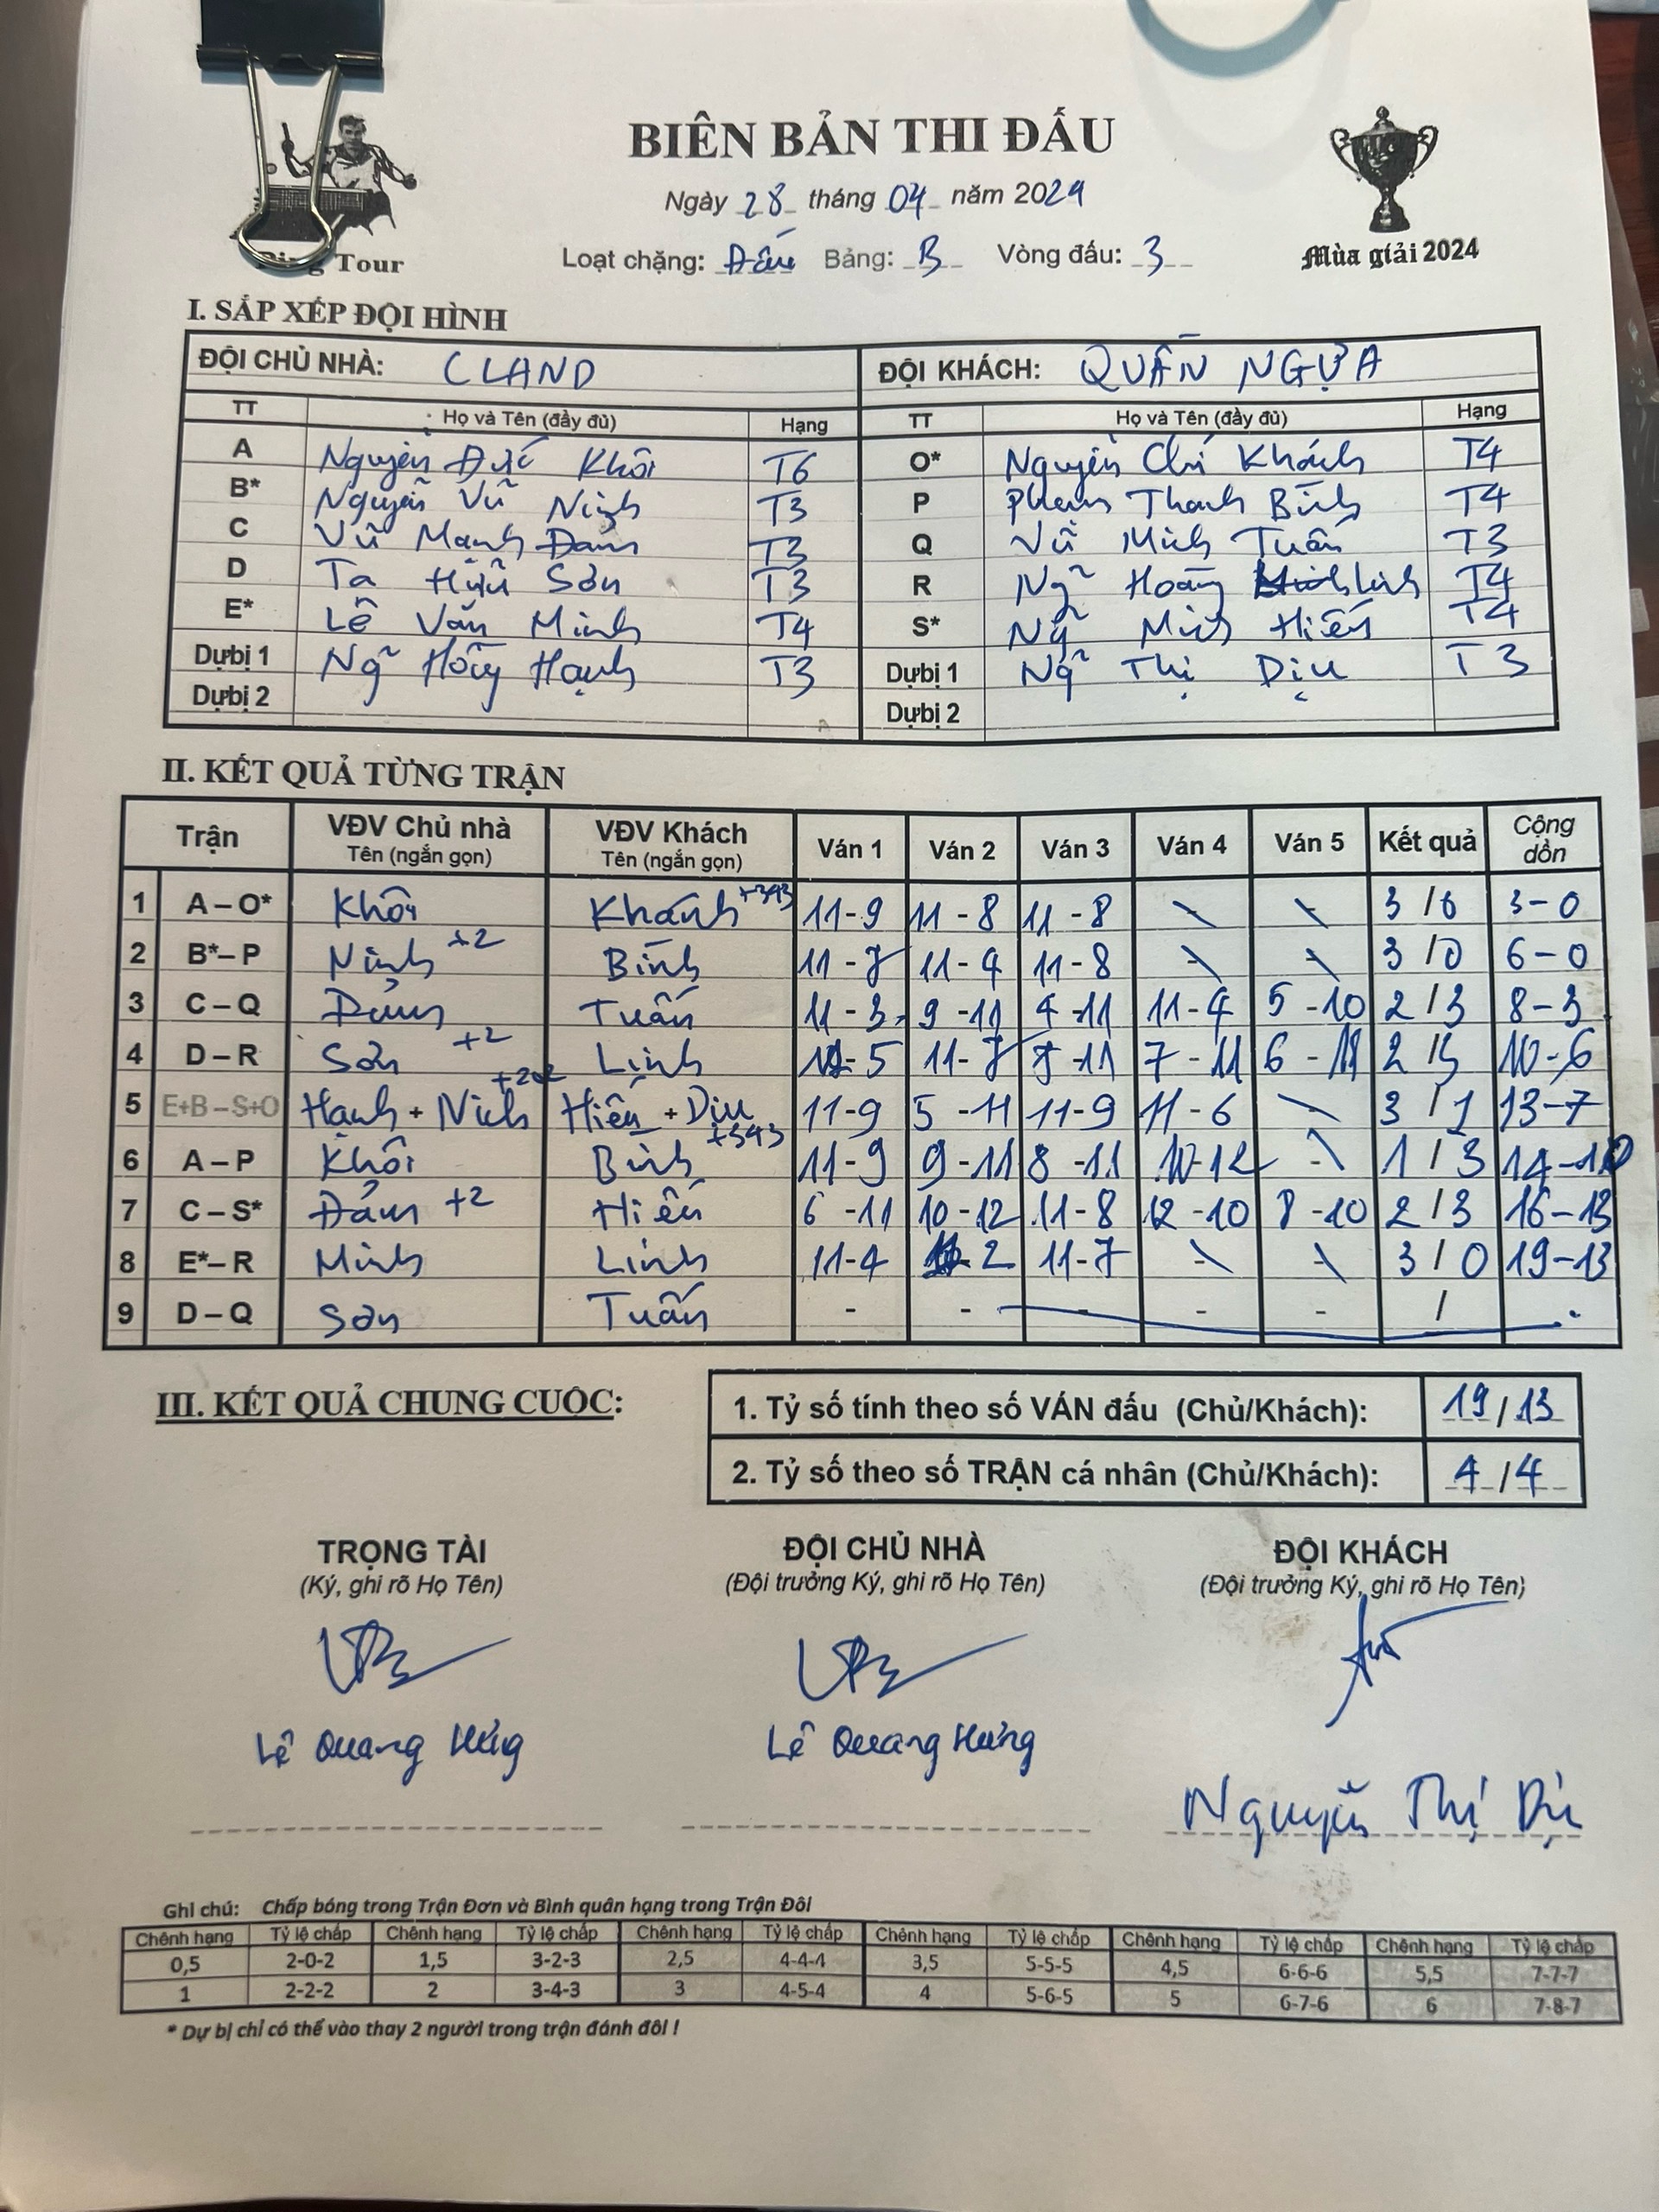 BIÊN BẢN THI ĐẤU
Ngày 28 tháng 04 năm 2024
Ping Tour
Loạt chặng: Đấu Bảng: B Vòng đấu: 3
Mùa giải 2024
I. SẮP XẾP ĐỘI HÌNH
ĐỘI CHỦ NHÀ: CLAND ĐỘI KHÁCH: QUẦN NGỰA
TT Họ và Tên (đầy đủ) Hạng TT Họ và Tên (đầy đủ) Hạng
A Nguyễn Đức Khôi T6 O* Nguyễn Chí Khánh T4
B* Nguyễn Vũ Ninh T3 P Phạm Thanh Bình T4
C Vũ Mạnh Đảm T3 Q Vũ Minh Tuấn T3
D Tạ Hữu Sơn T3 R Ng~ Hoàng Linh T4
E* Lê Văn Minh T4 S* Ng~ Minh Hiếu T4
Dự bị 1 Ng~ Hồng Hạnh T3 Dự bị 1 Ng~ Thị Dịu T3
Dự bị 2 Dự bị 2
II. KẾT QUẢ TỪNG TRẬN
Trận VĐV Chủ nhà Tên (ngắn gọn) VĐV Khách Tên (ngắn gọn) Ván 1 Ván 2 Ván 3 Ván 4 Ván 5 Kết quả Cộng dồn
1 A – O* Khôi Khánh +343 11-9 11-8 11-8 3/0 3-0
2 B* – P Ninh +2 Bình 11-7 11-4 11-8 3/0 6-0
3 C – Q Đảm Tuấn 11-3 9-11 4-11 11-4 5-10 2/3 8-3
4 D – R Sơn +2 Linh 11-5 11-7 8-11 7-11 6-11 2/3 10-6
5 E+B – S+O Hạnh + Ninh +202 Hiếu + Dịu 11-9 5-11 11-9 11-6 3/1 13-7
6 A – P Khôi Bình +343 11-9 9-11 8-11 10-12 - 1/3 14-10
7 C – S* Đảm +2 Hiếu 6-11 10-12 11-8 12-10 8-10 2/3 16-13
8 E* – R Minh Linh 11-4 11-2 11-7 - 3/0 19-13
9 D – Q Sơn Tuấn - - - - - /
III. KẾT QUẢ CHUNG CUỘC:
1. Tỷ số tính theo số VÁN đấu (Chủ/Khách): 19/13
2. Tỷ số theo số TRẬN cá nhân (Chủ/Khách): 4/4
TRỌNG TÀI ĐỘI CHỦ NHÀ ĐỘI KHÁCH
(Ký, ghi rõ Họ Tên) (Đội trưởng Ký, ghi rõ Họ Tên) (Đội trưởng Ký, ghi rõ Họ Tên)
Lê Quang Hưng Lê Quang Hưng
Nguyễn Thị Dịu
Ghi chú: Chấp bóng trong Trận Đơn và Bình quân hạng trong Trận Đôi
Chênh hạng Tỷ lệ chấp Chênh hạng Tỷ lệ chấp Chênh hạng Tỷ lệ chấp Chênh hạng Tỷ lệ chấp Chênh hạng Tỷ lệ chấp Chênh hạng Tỷ lệ chấp
0,5 2-0-2 1,5 3-2-3 2,5 4-4-4 3,5 5-5-5 4,5 6-6-6 5,5 7-7-7
1 2-2-2 2 3-4-3 3 4-5-4 4 5-6-5 5 6-7-6 6 7-8-7
* Dự bị chỉ có thể vào thay 2 người trong trận đánh đôi !